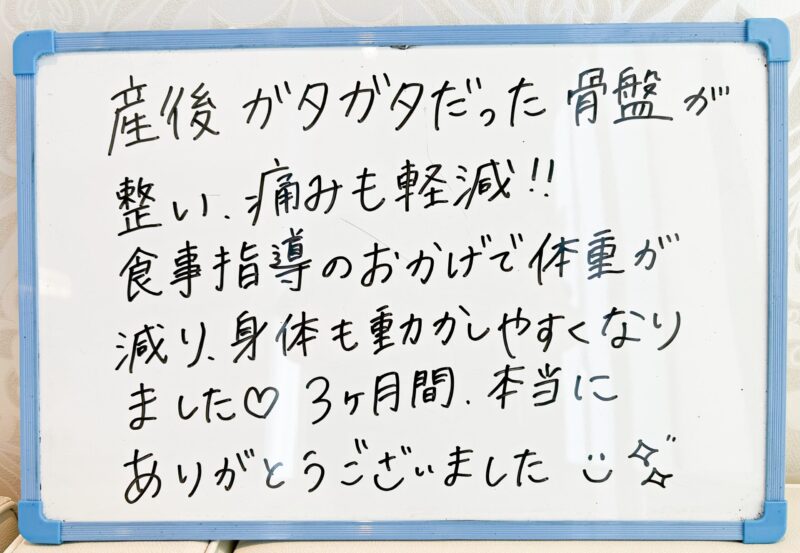 産後 ガタガタだった 骨盤が
整い、痛みも軽減!!
食事指導のおかげで体重が
減り、身体も動かしやすくなり
ました♡ 3ヶ月間、本当に
ありがとうございました